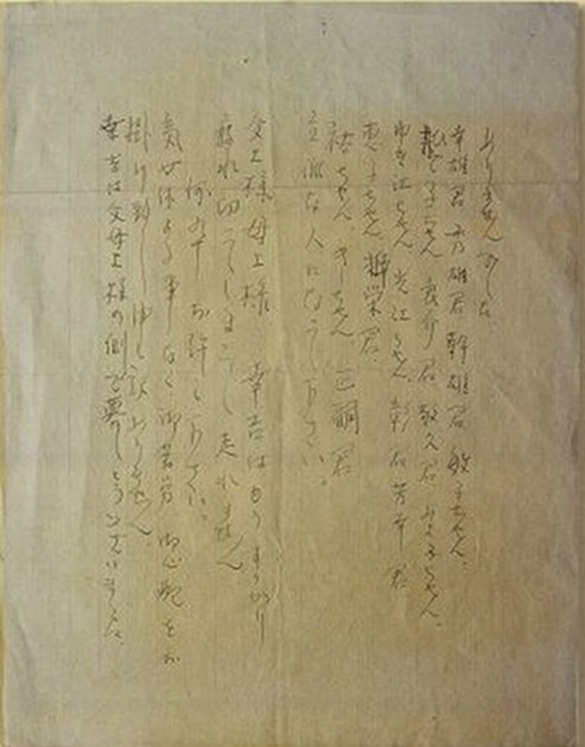 ありませんでした。
幸雄君 秀雄君 幹雄君 敏子ちゃん、
ひで子ちゃん 良介君 敬久君 みよ子ちゃん、
ゆき江ちゃん 光江ちゃん 彰君 芳幸君
恵子ちゃん 幸栄君
裕ちゃん キーちゃん 正嗣君
立派な人になって下さい。
父上様 母上様 幸吉はもうすっかり
疲れ切ってしまって走れません
何卒お許し下さい。
気が休まる事なく御苦労 御心配をお
掛け致し申し訳ありません、
幸吉は父母上様の側で暮しとうございました。